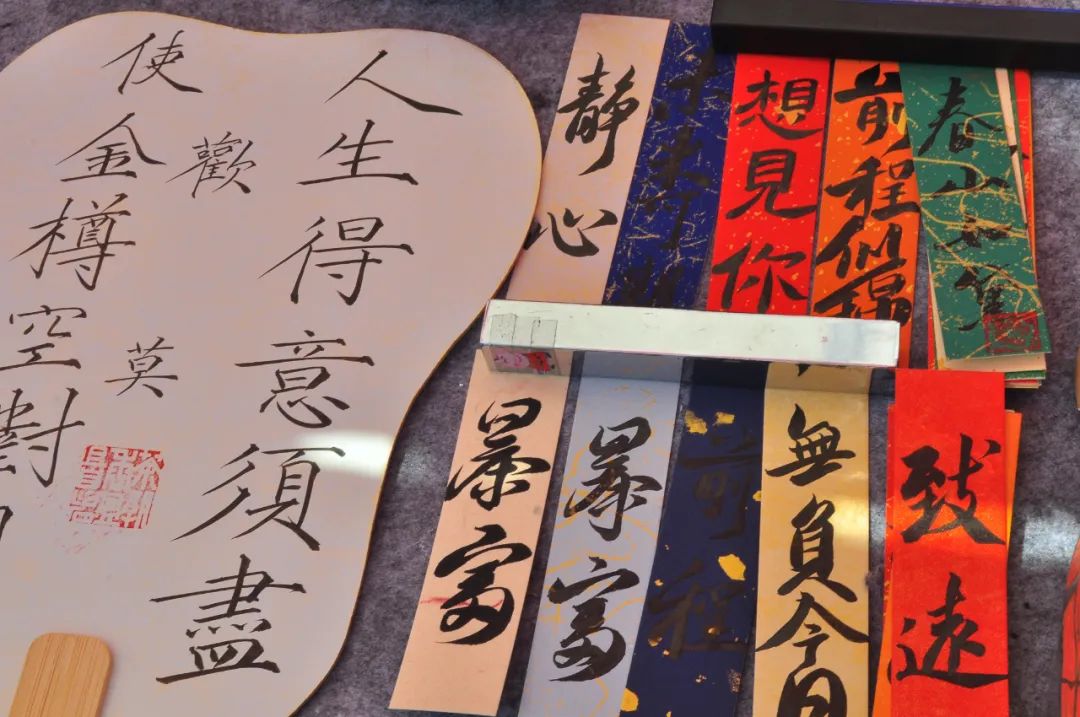 人生得意須盡
歡莫
使金樽空對
静心
想見你
前程似錦
春山如
暴富
暴富
前程
無負今日
致遠